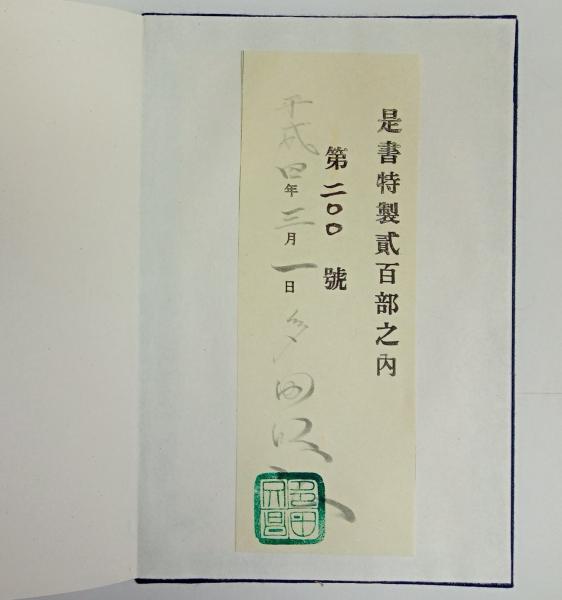 是書特製貳百部之內
第二〇〇號
平成四年三月一日 多田